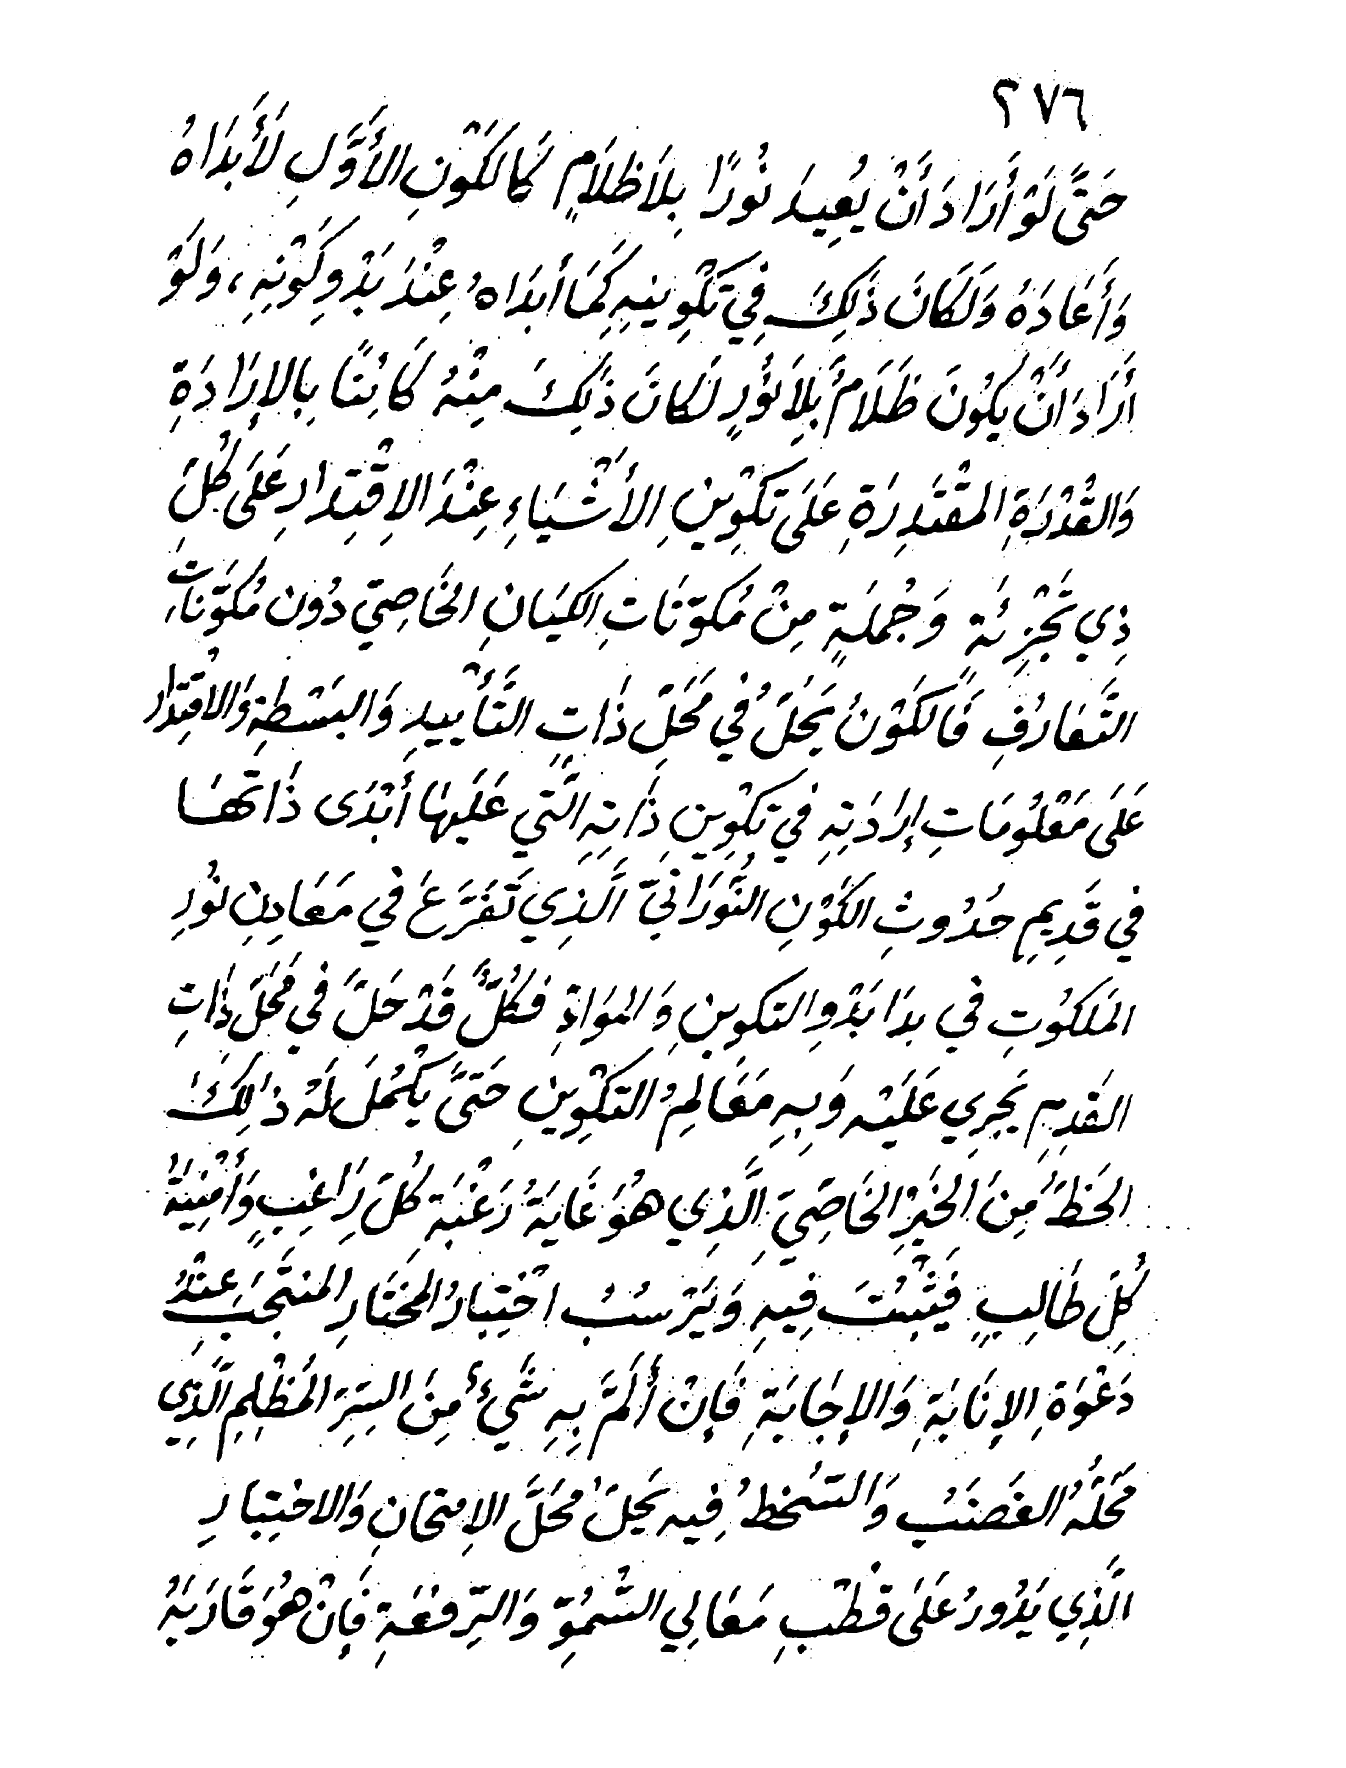 ٢٧٦
حَتَّى لَوْ أَرَادَ أَنْ يُعِيدَ نُورًا بِلَا ظَلَامٍ كَالكَوْنِ الأَوَّلِ لَأَبْدَاهُ
وَأَعَادَهُ وَلَكَانَ ذَلِكَ فِي تَكْوِينِهِ كَمَا أَبدَاهُ عِنْدَ بَدْوِ كَوْنِهِ، وَلَوْ
أَرَادَ أَنْ يَكُونَ ظَلَامٌ بِلَا نُورٍ لَكَانَ ذَلِكَ مِنْهُ كَائِنًا بِالإِرَادَةِ
وَالقُدْرَةِ المقْتَدِرَةِ عَلَى تَكْوِينِ الأَشْيَاءِ عِنْدَ الاِقْتِدَارِ عَلَى كُلِّ
ذِي تَجْزِئَةٍ وَجُملَةٍ مِنْ مُكوّنَاتِ الكيَانِ الخَاصِيّ دُون مُكوَّنَاتِ
التَّعَارُفِ فَالكَوْنُ يَحُلُّ فِي مَحَلِّ ذَاتِ التَّأْيِيدِ وَالبَسْطَةِ وَالاقْتِدَارِ
عَلَى مَعْلُومَاتِ إِرَادَتِهِ فِي تَكْوِينِ ذَاتِهِ الَّتِي عَلَيهَا أَبْدَى ذَاتَهَا
فِي قَدِيمِ حُدُوثِ الكَوْنِ النُّورَانِيّ الَّذِي تَفَرَّعَ فِي مَعَادِنِ نُورِ
المَلَكُوتِ فِي بِدَا بَدْوِ التكوينِ وَالموَادِّ فَكُلٌّ قَدْ حَلَّ فِي مَحَلِّ ذَاتِ
القِدَمِ يَجرِي عَلَيْهِ وَبِهِ مَعَالِمُ التكْوِينِ حَتَّى يَكْمُلَ لَهُ ذَالِكَ
الحَظُّ مِنَ الخَيْرِ الخَاصِّيِّ الَّذِي هُوَ غَايَةُ رَغْبَةِ كُلِّ رَاغِبٍ وَأُمْنِيَةُ
كُلِّ طَالِبٍ فَيَثْبُتَ فِيهِ وَيَرْسُبُ اخْتِبَارُ المخْتَارِ المنتَجَبِ عِنْدَ
دَعْوَةِ الإِنَابَةِ وَالإِجَابَةِ فَإِنْ أَلَمَّ بِهِ شَيْءٌ مِنَ السِّرِّ المُظْلِمِ الَّذِي
مَحَلُّهُ الغَضَبُ وَالسَّخطُ فِيه يَحِلُّ مَحَلَّ الإِمتحَانِ وَالاختِبَارِ
الَّذِي يَدُورُ عَلَى قُطْبِ مَعَالِي السُّمُوِّ وَالرِّفْعَةِ فَإِنْ هُوَ قَارَبَهُ